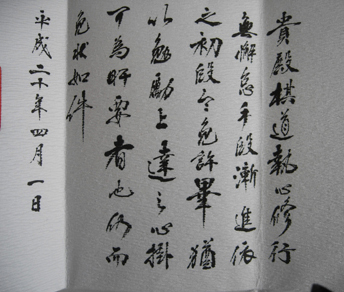 貴殿棋道執心修行
無懈怠手段漸進依
之初段令免許畢猶
以勉勵上達之心掛
可為肝要者也仍而
免状如件
平成二十年四月一日